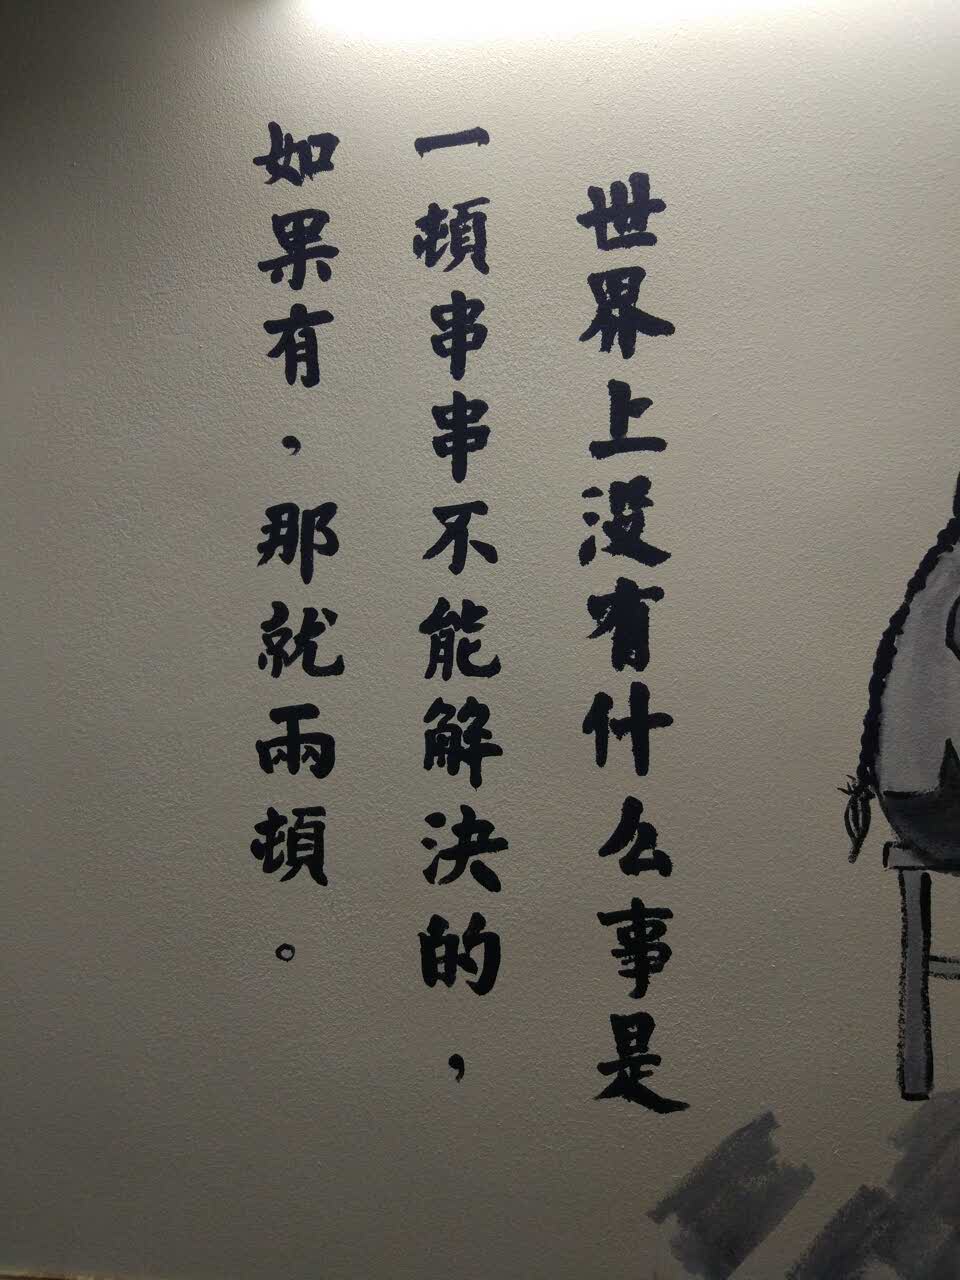 世界上没有什么事是
一頓串串不能解決的，
如果有，那就兩頓。